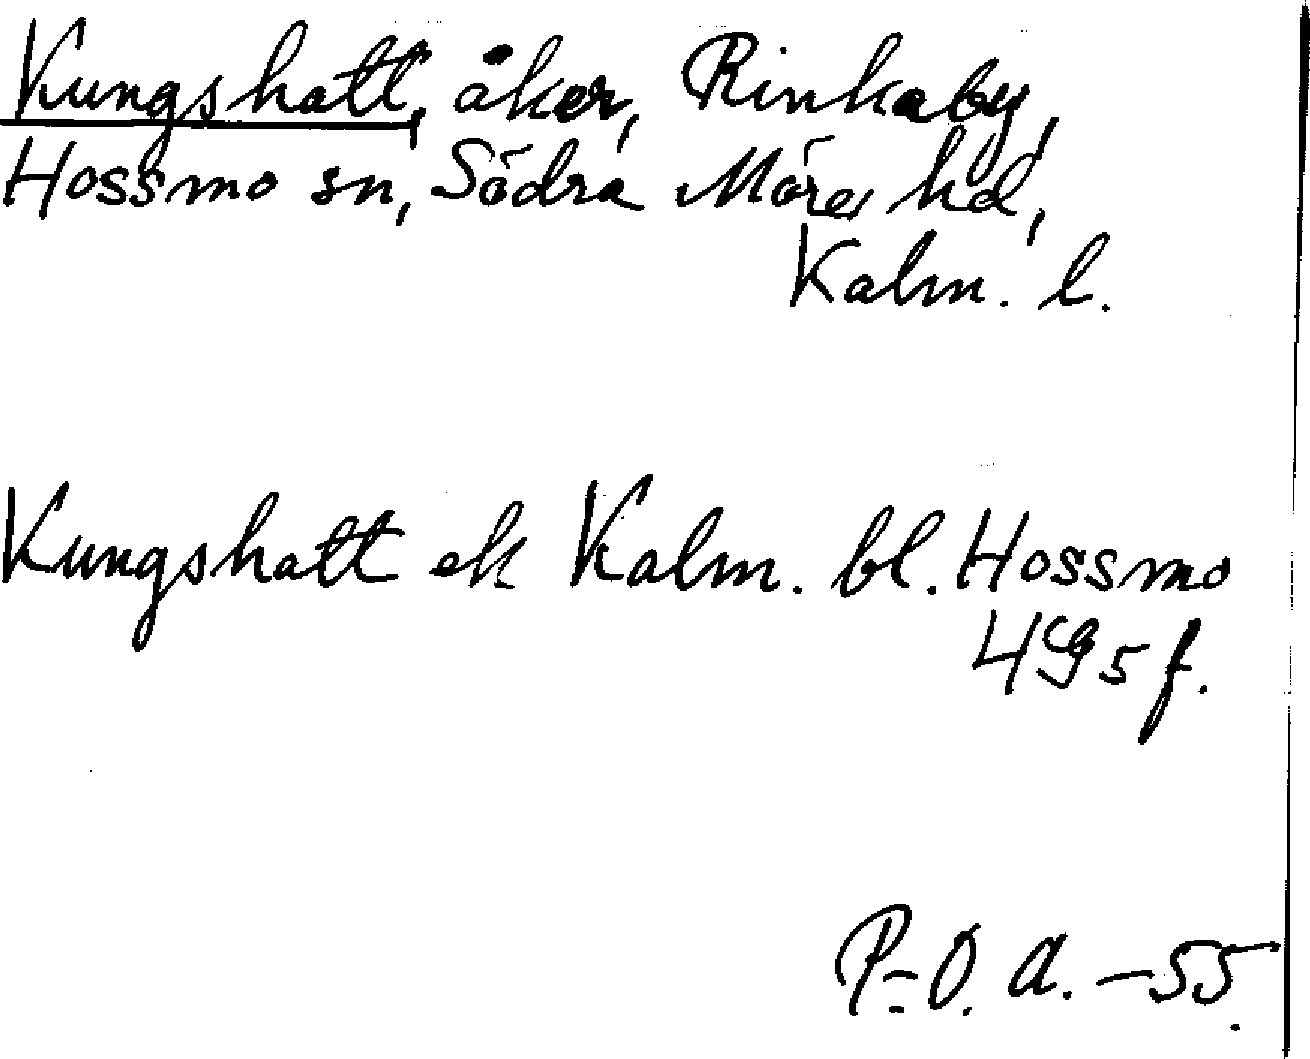 Kungshatt, åker, Rinkaby,
Hossmo sn, Södra Möre hd,
Kalm. l.
Kungshatt ek Kalm. bl. Hossmo
495 f.
P-O. A. -55.